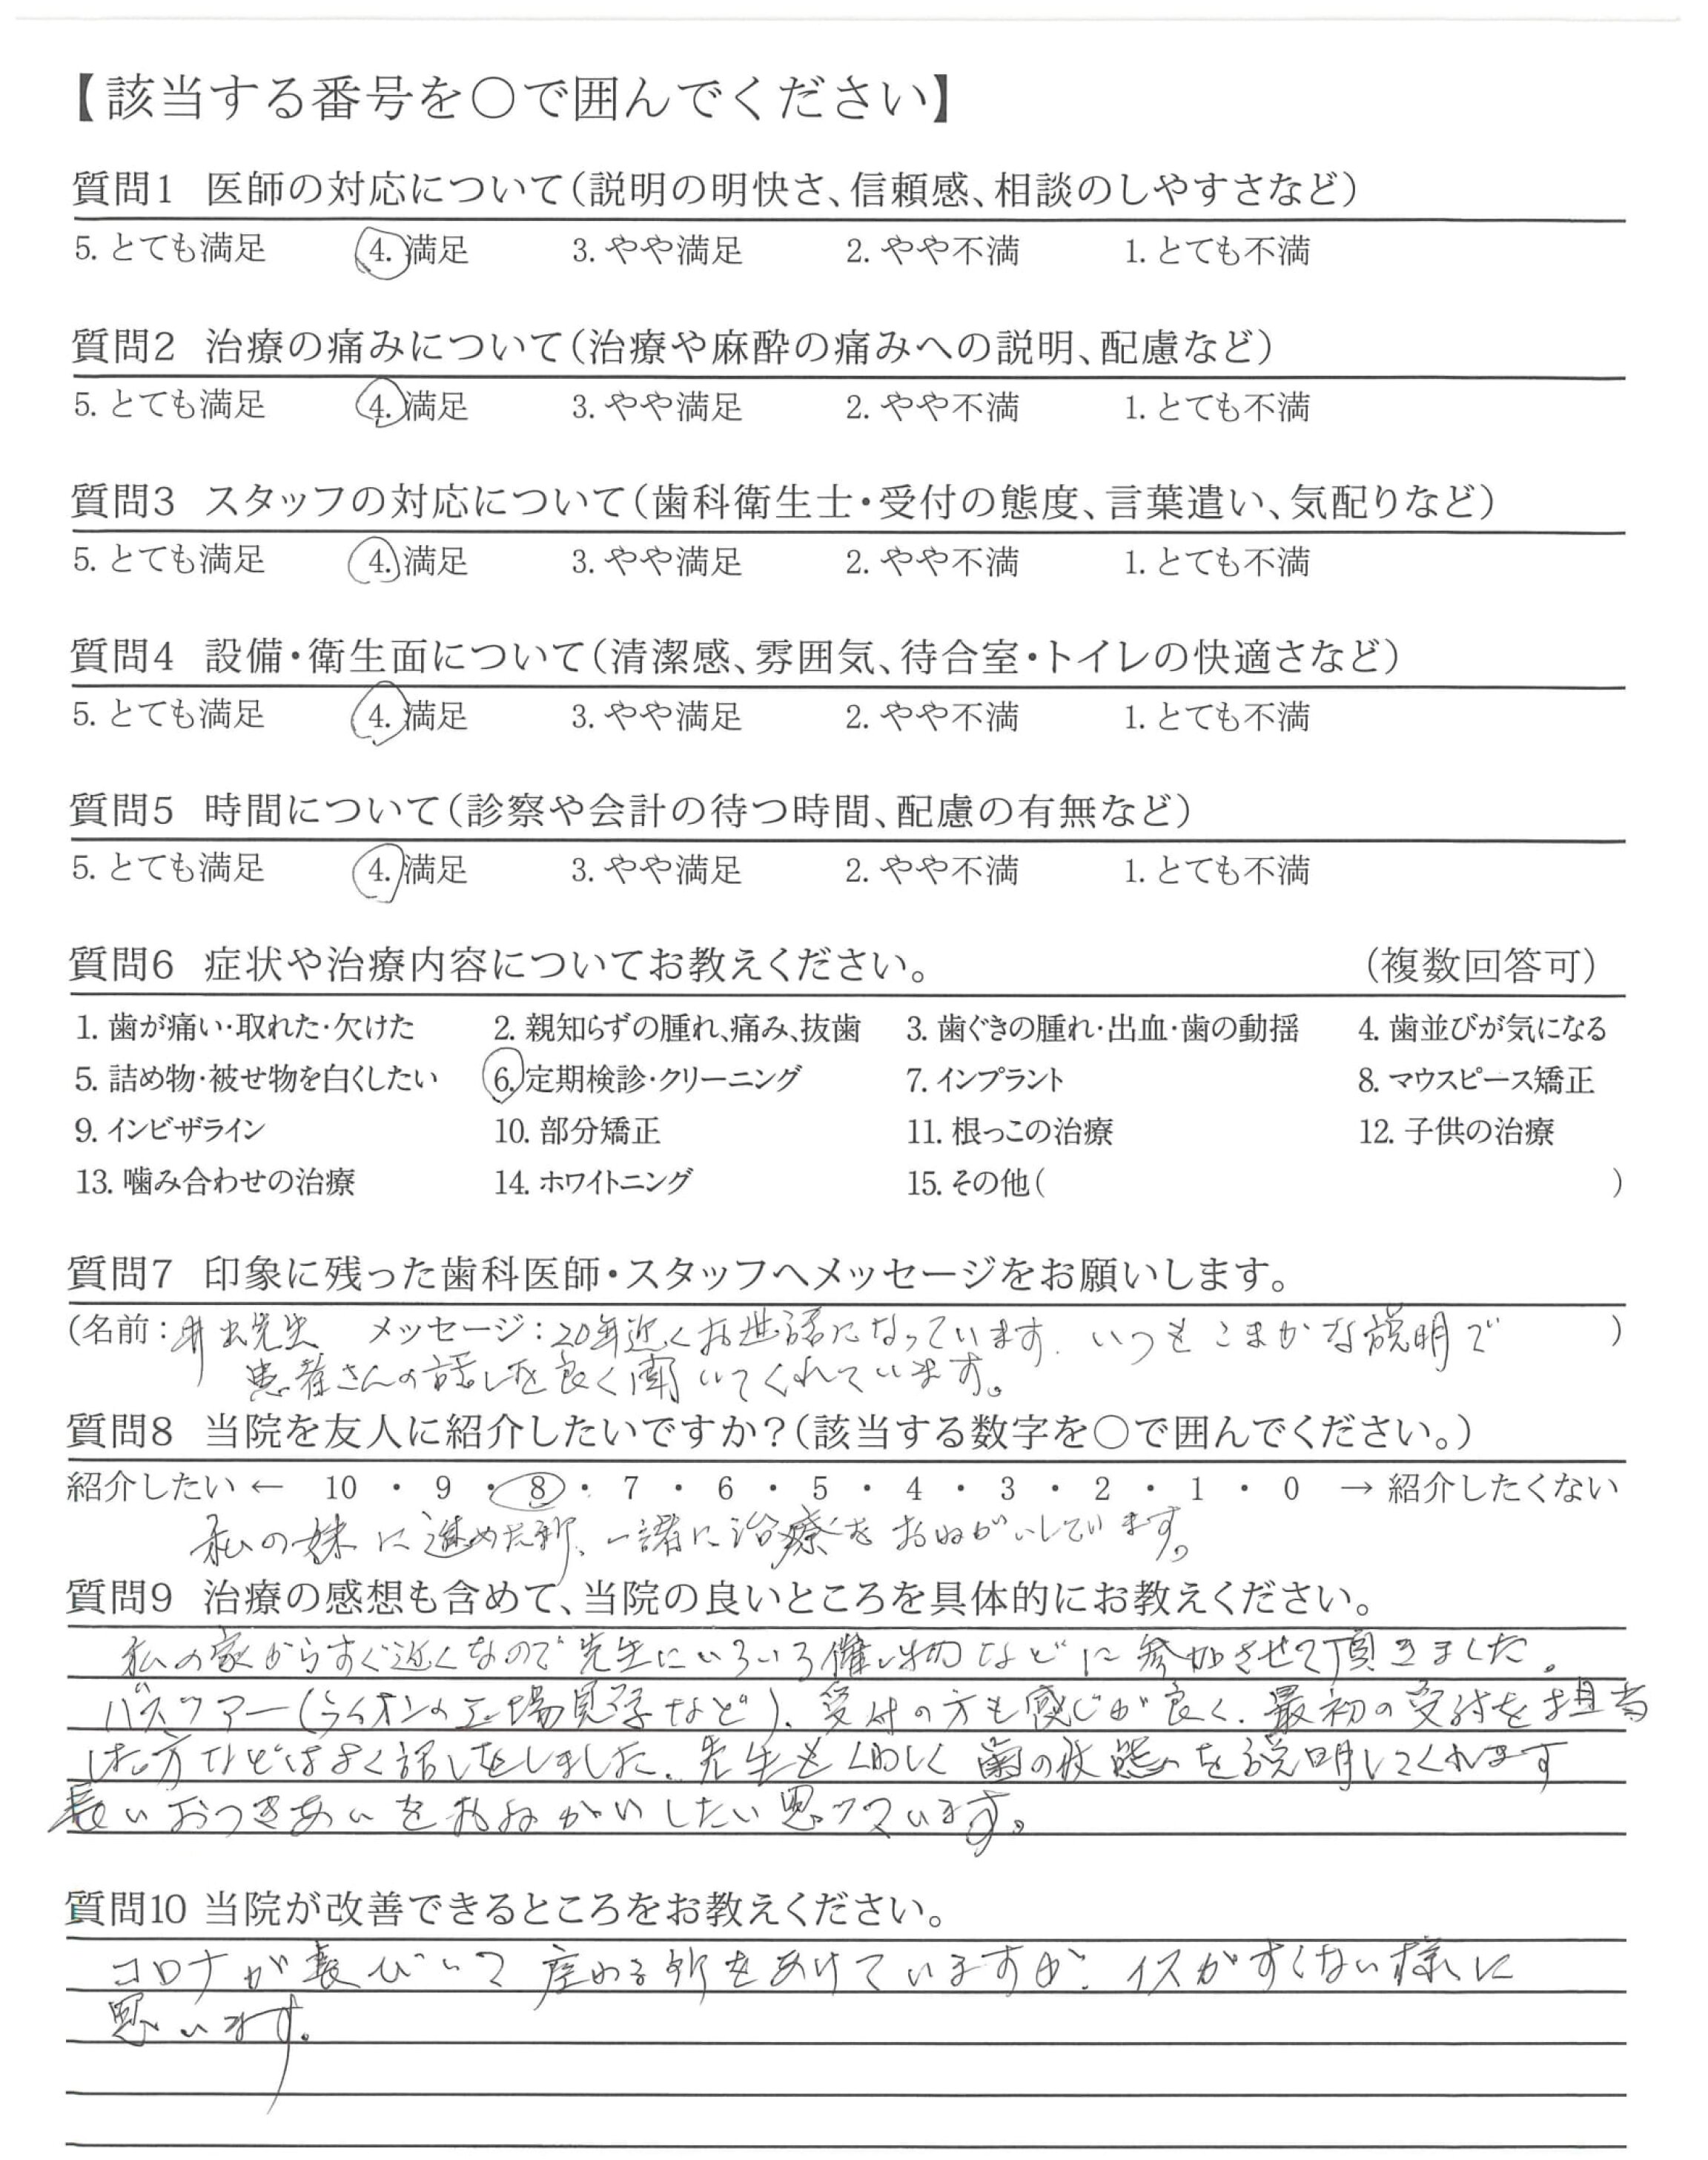 【該当する番号を〇で囲んでください】
質問1 医師の対応について(説明の明快さ、信頼感、相談のしやすさなど)
5. とても満足 4. 満足 3. やや満足 2. やや不満 1. とても不満
質問2 治療の痛みについて(治療や麻酔の痛みへの説明、配慮など)
5. とても満足 4. 満足 3. やや満足 2. やや不満 1. とても不満
質問3 スタッフの対応について(歯科衛生士・受付の態度、言葉遣い、気配りなど)
5. とても満足 4. 満足 3. やや満足 2. やや不満 1. とても不満
質問4 設備・衛生面について(清潔感、雰囲気、待合室・トイレの快適さなど)
5. とても満足 4. 満足 3. やや満足 2. やや不満 1. とても不満
質問5 時間について(診察や会計の待つ時間、配慮の有無など)
5. とても満足 4. 満足 3. やや満足 2. やや不満 1. とても不満
質問6 症状や治療内容についてお教えください。 (複数回答可)
1. 歯が痛い・取れた・欠けた 2. 親知らずの腫れ、痛み、抜歯 3. 歯ぐきの腫れ・出血・歯の動揺 4. 歯並びが気になる
5. 詰め物・被せ物を白くしたい 6. 定期検診・クリーニング 7. インプラント 8. マウスピース矯正
9. インビザライン 10. 部分矯正 11. 根っこの治療 12. 子供の治療
13. 噛み合わせの治療 14. ホワイトニング 15. その他( )
質問7 印象に残った歯科医師・スタッフへメッセージをお願いします。
(名前:井出先生 メッセージ:20年近くお世話になっています。いつもこまかな説明で )
患者さんの話しを良く聞いてくれています。
質問8 当院を友人に紹介したいですか?(該当する数字を〇で囲んでください。)
紹介したい ← 10 ・ 9 ・ 8 ・ 7 ・ 6 ・ 5 ・ 4 ・ 3 ・ 2 ・ 1 ・ 0 → 紹介したくない
私の妹に進めた所、一諸に治療をおねがいしています。
質問9 治療の感想も含めて、当院の良いところを具体的にお教えください。
私の家からすぐ近くなので先生にいろいろ催し物などに参加させて頂きました。
バスツアー(ライオンの工場見学など)、受付の方も感じが良く、最初の受付を担当
した方などはよく話しをしました。先生もくわしく歯の状態を説明してくれます
長いおつきあいをおねがいしたい思っています。
質問10 当院が改善できるところをお教えください。
コロナが長びいて座わる所をあけていますが、イスがすくない様に
思います。